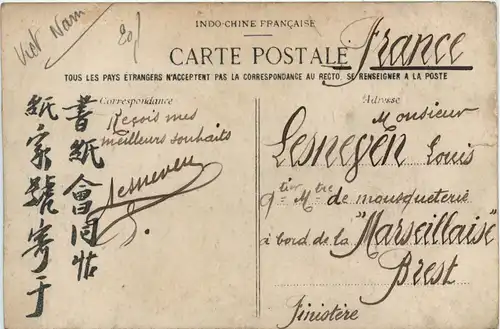 Viet Nam
INDO-CHINE FRANÇAISE
CARTE POSTALE
France
TOUS LES PAYS ÉTRANGERS N'ACCEPTENT PAS LA CORRESPONDANCE AU RECTO, SE RENSEIGNER A LA POSTE
Correspondance
Reçois mes
meilleurs souhaits
書紙會同帖
紙家號寄于
Adresse
Monsieur
Lesnegen Louis
qtier Mtre de mousqueterie
à bord de la "Marseillaise"
Brest
Finistère